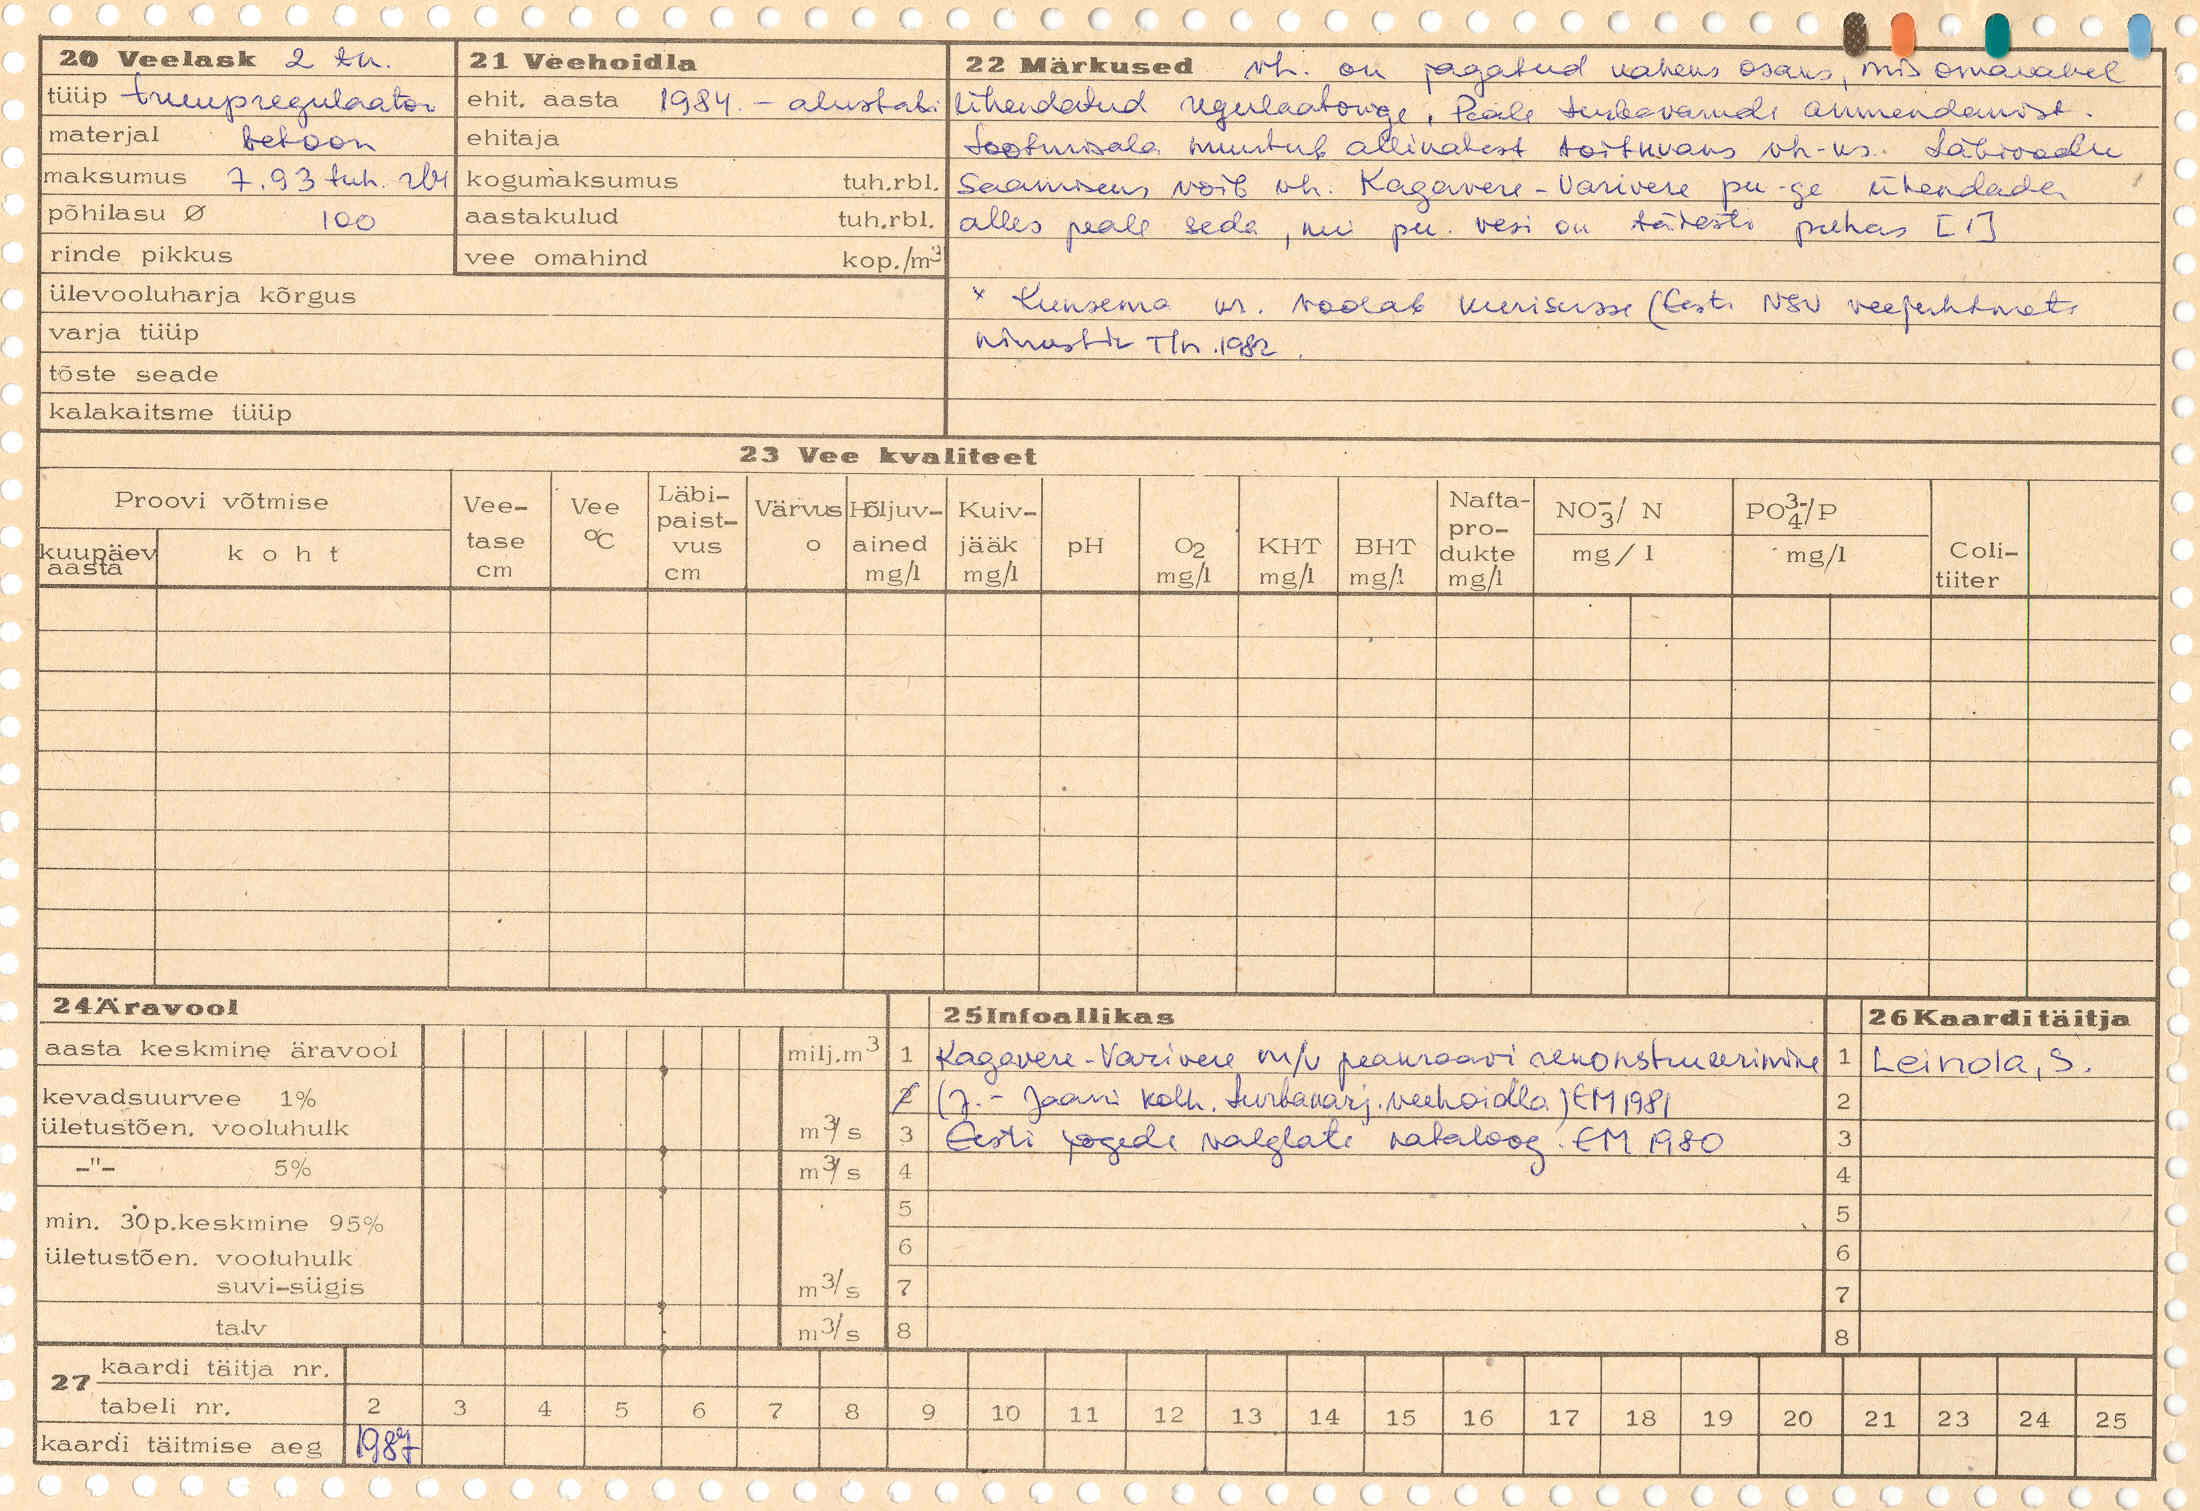 20 Veelask 2 tk.
tüüp truupregulaator
materjal betoon
maksumus 7.93 tuh. rbl
põhilasu Ø 100
rinde pikkus
ülevooluharja kõrgus
varja tüüp
tõste seade
kalakaitsme tüüp
21 Veehoidla
ehit. aasta 1984. - alustati
ehitaja
kogumaksumus tuh.rbl.
aastakulud tuh.rbl.
vee omahind kop./m³
22 Märkused vh. on jagatud kaheks osaks, mis omavahel
ühendatud regulaatoriga. Peale turbavarude ammendamist
tootmisala muutub allikatest toituvaks vh-ks. Läbivoolu
saamiseks võib vh. Kagavere-Varivere pu-ge ühendada
alles peale seda, kui pu. vesi on täiesti puhas [1]
* Kunsema kr. voolab kurisusse (Eesti NSV veejuhtmete
nimestik Tln. 1982.
23 Vee kvaliteet
Proovi võtmise
kuupäev aasta
koht
Vee-tase cm
Vee °C
Läbi-paist-vus cm
Värvus o
Hõljuv-ained mg/l
Kuiv-jääk mg/l
pH
O2 mg/l
KHT mg/l
BHT mg/l
Nafta-pro-dukte mg/l
NO3⁻/ N mg/l
PO4³⁻/P mg/l
Coli-tiiter
24 Äravool
aasta keskmine äravool milj.m³
kevadsuurvee 1%
ületustõen. vooluhulk m³/s
-"- 5% m³/s
min. 30p.keskmine 95%
ületustõen. vooluhulk
suvi-sügis m³/s
talv m³/s
25 Infoallikas
1 Kagavere-Varivere m/v peakraavi rekonstrueerimine
2 (J.-Jaani kolh. turbavarj. veehoidla) EM 1981
3 Eesti jõgede valglate kataloog. EM 1980
4
5
6
7
8
26 Kaarditäitja
1 Leinola, S.
2
3
4
5
6
7
8
27 kaardi täitja nr.
tabeli nr. 2 3 4 5 6 7 8 9 10 11 12 13 14 15 16 17 18 19 20 21 23 24 25
kaardi täitmise aeg 1987